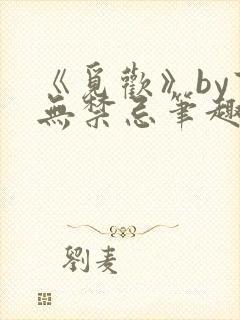 《覓歡》by
無禁忌筆趣
劉麦